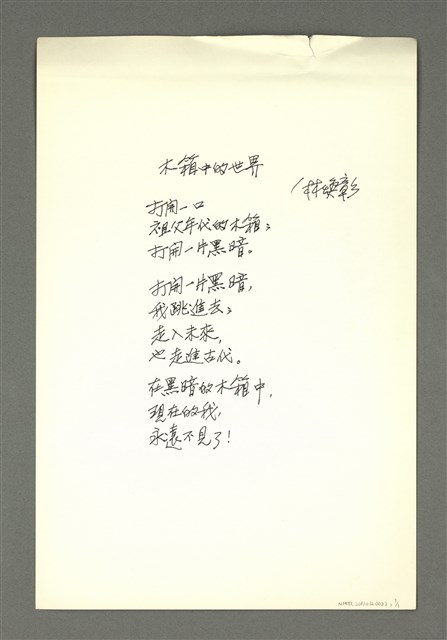 木箱中的世界
林煥彰
打開一口
祖父年代的木箱；
打開一片黑暗。
打開一片黑暗，
我跳進去；
走入未來，
也走進古代。
在黑暗的木箱中，
現在的我，
永遠不見了！